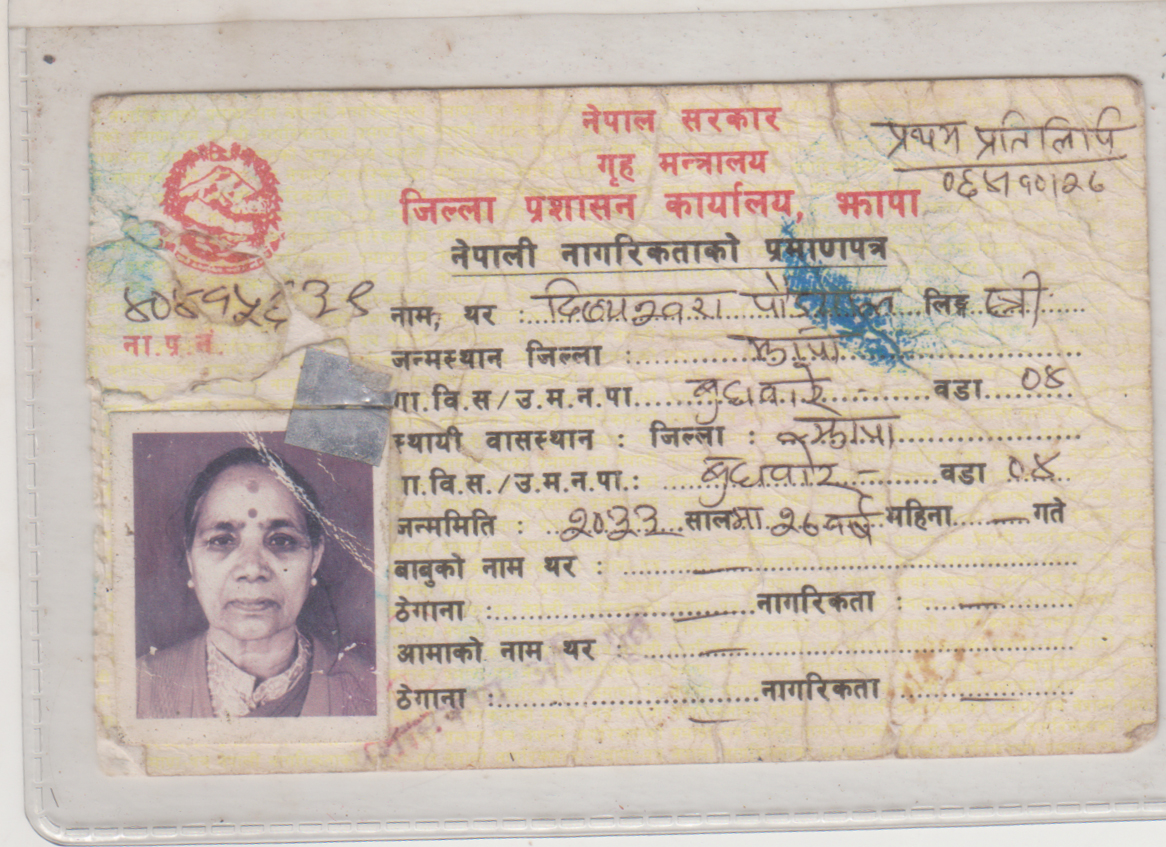 नेपाल सरकार
गृह मन्त्रालय
जिल्ला प्रशासन कार्यालय, झापा
नेपाली नागरिकताको प्रमाणपत्र
प्रथम प्रतिलिपि
ना.प्र.नं.
नाम, थर : लिङ्ग स्त्री
जन्मस्थान जिल्ला : झापा
गा.वि.स/उ.म.न.पा. बुधवारे वडा ०४
स्थायी वासस्थान : जिल्ला : झापा
गा.वि.स./उ.म.न.पा.: बुधवारे - वडा ०४
जन्ममिति : २०३३ सालमा २६ वर्ष महिना — गते
बाबुको नाम थर : —
ठेगाना : — नागरिकता : —
आमाको नाम थर : —
ठेगाना : — नागरिकता —